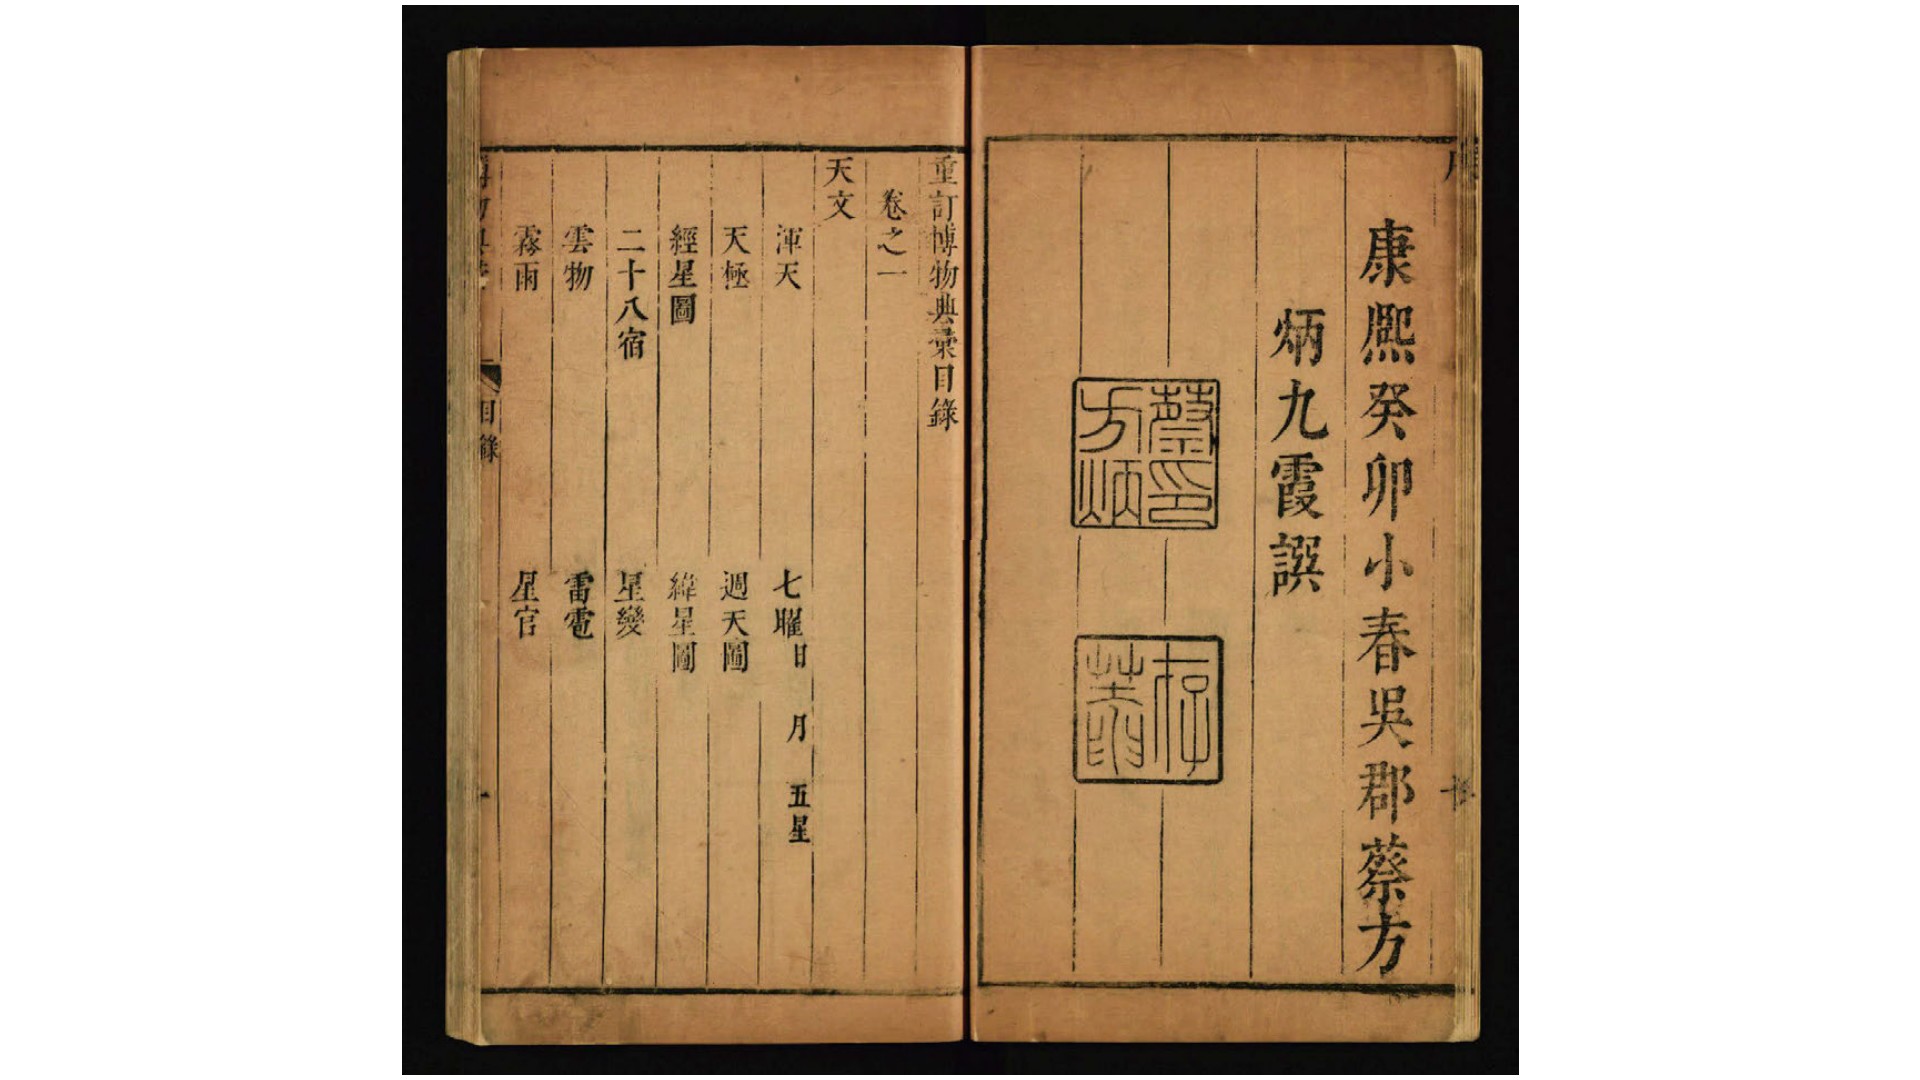 康熙癸卯小春吳郡蔡方
炳九霞譔
蔡印方炳
重訂博物典彙目錄
卷之一
天文
渾天 七曜 日 月 五星
天極 週天圖
經星圖 緯星圖
二十八宿 星變
雲物 雷電
霧雨 星官
目錄